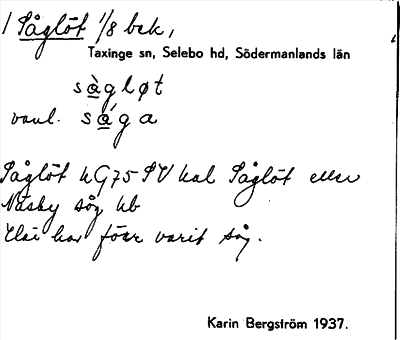 1 Såglöt 1/8 bek,
Taxinge sn, Selebo hd, Södermanlands län
sàgløt
vanl. sága
Såglöt hG75 SV kal Såglöt eller
Näsby såg hb
här har förr varit såg.
Karin Bergström 1937.